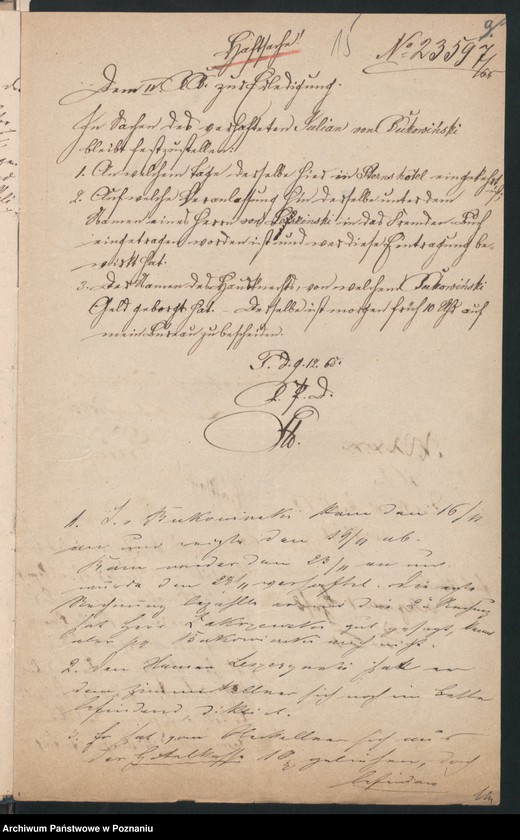 9.
Haftsache!
15
No 23597/65
Dem IV. zur Erledigung.
In Sachen des verhafteten Julian von Bukowiński
bleibt festzustellen:
1. An welchem Tage derselbe hier in Sterns Hôtel eingekehrt,
2. Auf welche Veranlassung hin derselbe unter dem
Namen eines Herrn von in das Fremden-Buch
eingetragen worden ist und wer diese Eintragung be-
wirkt hat.
3. Der Namen des Hausknechts, von welchem Bukowiński
Geld geborgt hat. – Derselbe ist morgen früh 10 Uhr auf
mein Bureau zu bescheiden.
P. d. 9.12.65.
D. P. D.
1. J. v Bukowinski kam den 16/11
an und reiste den 19/11 ab.
Kam wieder den 23/11 an und
wurde den 28/11 verhaftet. Die erste
Rechnung bezahlte er, und die Rechnung
hat Herr Zakrzewski gut gesagt,
aber Bukowinski auch nicht.
2. Den Namen hat er
dem Zimmerkellner sich noch im Bette
befindend diktirt.
3. Er hat vom Oberkellner sich aus
der Hotelkasse 10 geliehen, doch
befinden